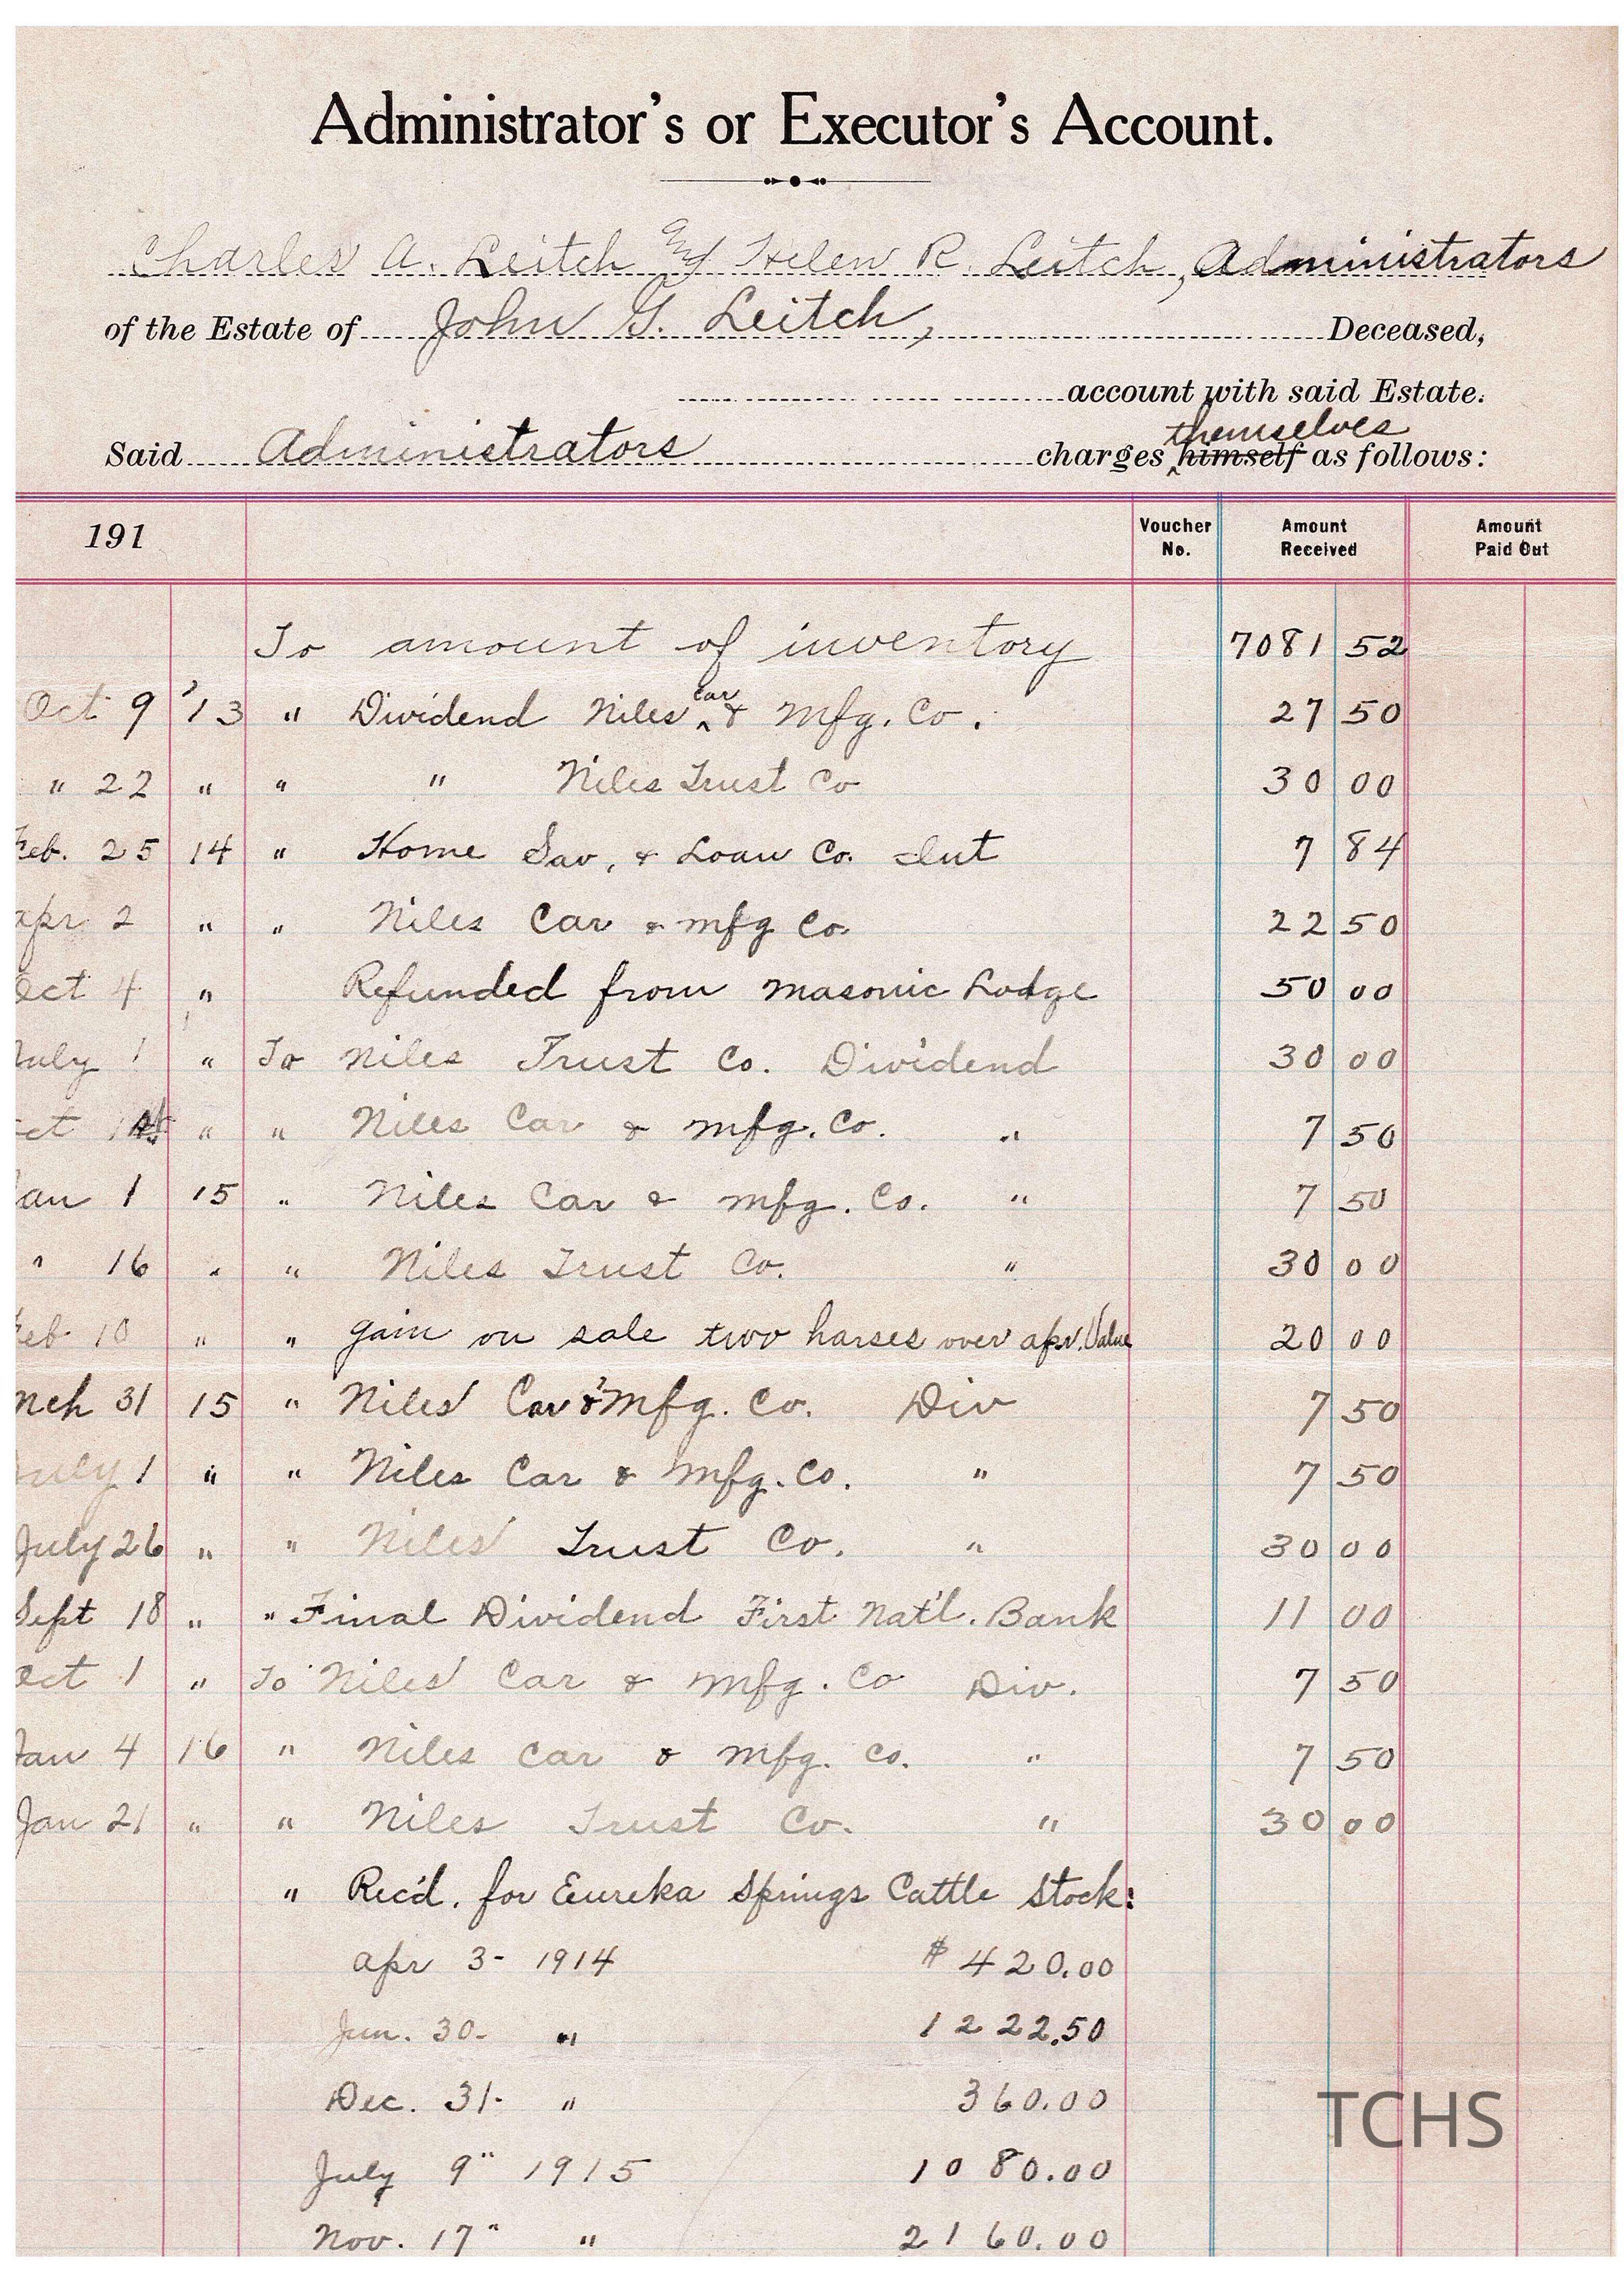 Administrator's or Executor's Account.
Charles A. Leitch and Helen R. Leitch, Administrators
of the Estate of John G. Leitch, Deceased,
account with said Estate.
themselves
Said Administrators charges himself as follows:
191 Voucher No. Amount Received Amount Paid Out
To amount of inventory 7081 52
Oct 9 '13 " Dividend Niles Car & Mfg. Co. 27 50
" 22 " " " Niles Trust Co 30 00
Feb. 25 14 " Home Sav, & Loan Co. Int 7 84
Apr 2 " " Niles Car & Mfg Co 22 50
Oct 4 " Refunded from Masonic Lodge 50 00
July 1 " To Niles Trust Co. Dividend 30 00
ct " " Niles Car & Mfg. Co. " 7 50
an 1 15 " Niles Car & Mfg. Co. " 7 50
" 16 " " Niles Trust Co. " 30 00
Feb 10 " " gain on sale two horses over apr. Value 20 00
Mch 31 15 " Niles Car & Mfg. Co. Div 7 50
July 1 " " Niles Car & Mfg. Co. " 7 50
July 26 " " Niles Trust Co. " 30 00
Sept 18 " " Final Dividend First Nat'l. Bank 11 00
Oct 1 " To Niles Car & Mfg. Co Div. 7 50
Jan 4 16 " Niles Car & Mfg. Co. " 7 50
Jan 21 " " Niles Trust Co. " 30 00
" Rec'd. for Eureka Springs Cattle Stock:
Apr 3- 1914 $ 420.00
Jun. 30- " 1222.50
Dec. 31- " 360.00
July 9" 1915 1080.00
Nov. 17" " 2160.00
TCHS